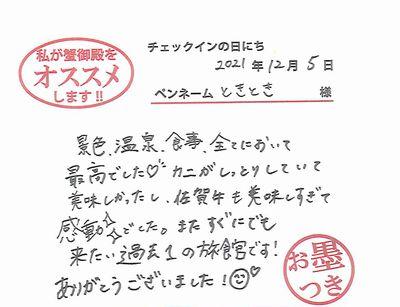 私が蟹御殿を
オススメ
します!!
チェックインの日にち
2021年12月5日
ペンネーム ときとき 様
景色、温泉、食事、全てにおいて
最高でした♡カニがしっとりしていて
美味しかったし、佐賀牛も美味しすぎて
感動でした。またすぐにでも
来たい過去1の旅館です!
ありがとうございました!
お墨
つき